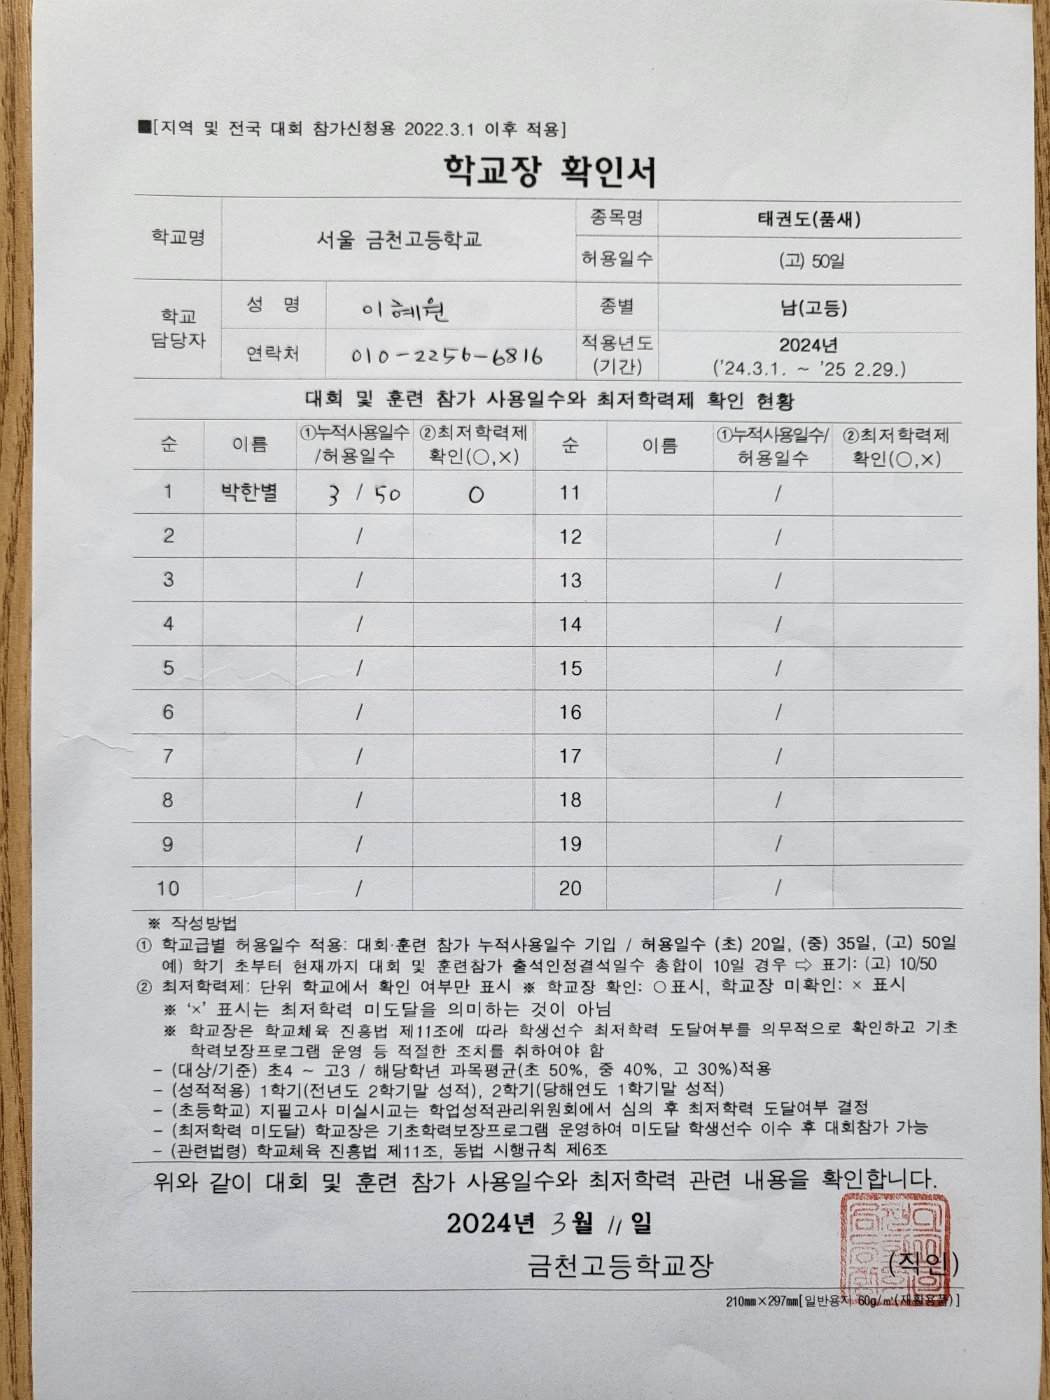 ■[지역 및 전국 대회 참가신청용 2022.3.1 이후 적용]
학교장 확인서
학교명 서울 금천고등학교 종목명 태권도(품새)
허용일수 (고) 50일
학교 담당자 성 명 이혜원 종별 남(고등)
연락처 010-2256-6816 적용년도 (기간) 2024년 ('24.3.1. ~ '25 2.29.)
대회 및 훈련 참가 사용일수와 최저학력제 확인 현황
순 이름 ①누적사용일수 /허용일수 ②최저학력제 확인(○,×) 순 이름 ①누적사용일수/ 허용일수 ②최저학력제 확인(○,×)
1 박한별 3 / 50 O 11 /
2 / 12 /
3 / 13 /
4 / 14 /
5 / 15 /
6 / 16 /
7 / 17 /
8 / 18 /
9 / 19 /
10 / 20 /
※ 작성방법
① 학교급별 허용일수 적용: 대회·훈련 참가 누적사용일수 기입 / 허용일수 (초) 20일, (중) 35일, (고) 50일
예) 학기 초부터 현재까지 대회 및 훈련참가 출석인정결석일수 총합이 10일 경우 ⇨ 표기: (고) 10/50
② 최저학력제: 단위 학교에서 확인 여부만 표시 ※ 학교장 확인: ○표시, 학교장 미확인: × 표시
※ '×' 표시는 최저학력 미도달을 의미하는 것이 아님
※ 학교장은 학교체육 진흥법 제11조에 따라 학생선수 최저학력 도달여부를 의무적으로 확인하고 기초
학력보장프로그램 운영 등 적절한 조치를 취하여야 함
- (대상/기준) 초4 ~ 고3 / 해당학년 과목평균(초 50%, 중 40%, 고 30%)적용
- (성적적용) 1학기(전년도 2학기말 성적), 2학기(당해연도 1학기말 성적)
- (초등학교) 지필고사 미실시교는 학업성적관리위원회에서 심의 후 최저학력 도달여부 결정
- (최저학력 미도달) 학교장은 기초학력보장프로그램 운영하여 미도달 학생선수 이수 후 대회참가 가능
- (관련법령) 학교체육 진흥법 제11조, 동법 시행규칙 제6조
위와 같이 대회 및 훈련 참가 사용일수와 최저학력 관련 내용을 확인합니다.
2024년 3월 11일
금천고등학교장 (직인)
210㎜×297㎜[일반용지 60g/㎡(재활용품)]